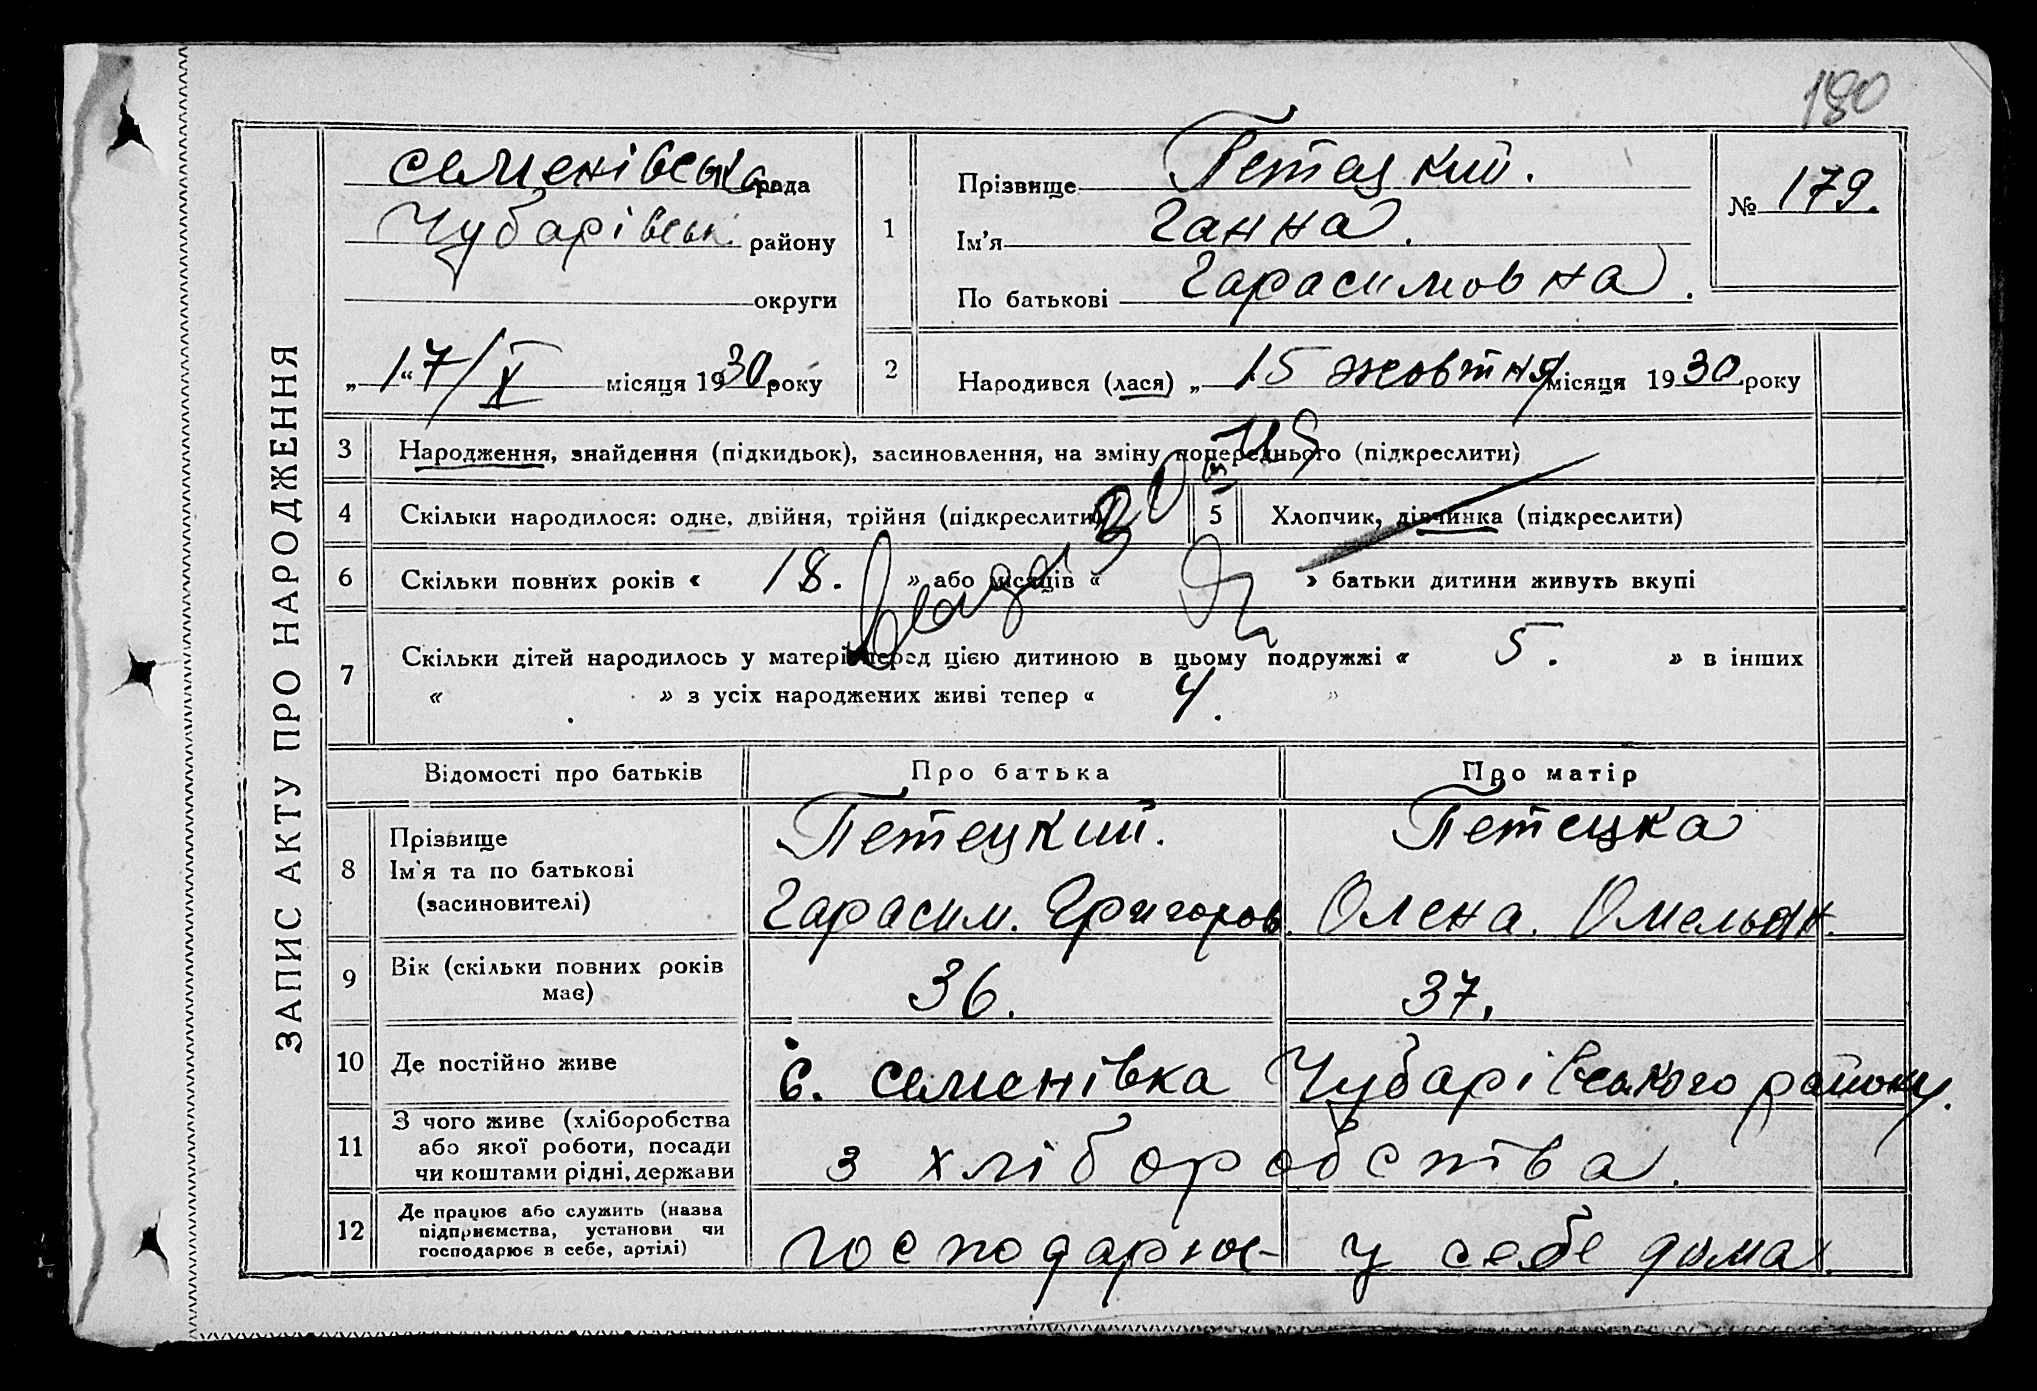 180
ЗАПИС АКТУ ПРО НАРОДЖЕННЯ
семенівська рада
Чубарівськ. району
округи
„ 17/X “ місяця 1930 року
1
Прізвище Петецкий.
Ім’я Ганна.
По батькові Гарасимовна.
№ 179.
2 Народився (лася) „ 15 жовтня місяця 1930 року
3 Народження, знайдення (підкидьок), засиновлення, на зміну попереднього (підкреслити)
4 Скільки народилося: одне, двійня, трійня (підкреслити)
5 Хлопчик, дівчинка (підкреслити)
6 Скільки повних років « 18. » або місяців « » батьки дитини живуть вкупі
7 Скільки дітей народилось у матері перед цією дитиною в цьому подружжі « 5. » в інших
« » з усіх народжених живі тепер « 4. »
Відомості про батьків Про батька Про матір
8 Прізвище
Ім’я та по батькові
(засиновителі)
Петецкий. Петецка
Гарасим. Григоров. Олена. Омельян.
9 Вік (скільки повних років
має)
36. 37.
10 Де постійно живе с. семенівка Чубарівського району.
11 З чого живе (хліборобства
або якої роботи, посади
чи коштами рідні, держави
з хліборобства.
12 Де працює або служить (назва
підприємства, установи чи
господарює в себе, артілі)
господарює у себе дома.